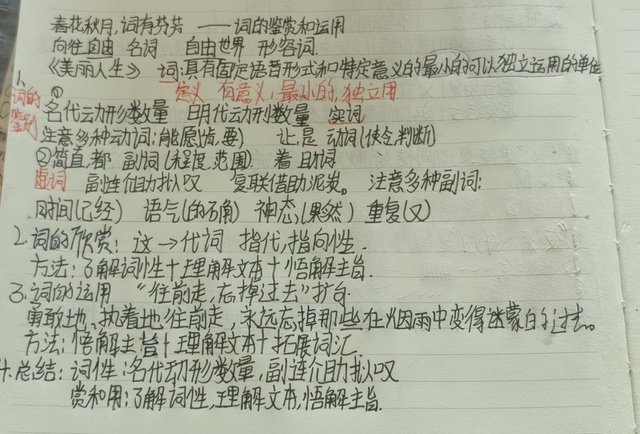 春花秋月,词有芬芳 ——词的鉴赏和运用
向往自由 名词 自由世界 形容词.
《美丽人生》 词:具有固定语音形式和特定意义的最小的可以独立运用的单位
1. ① 定义 有意义,最小的,独立用
词的鉴别 名代动形数量 明代动刑数量 实词
注意多种动词:能愿(肯,要) 让,是 动词(使令,判断)
②简直,都 副词(程度,范围) 着 助词
虚词 副连介助拟叹 复联借助泥炭。 注意多种副词:
时间(已经) 语气(的确) 神态(果然) 重复(又)
2.词的欣赏:这→代词 指代,指向性.
方法:了解词性+理解文本+悟解主旨.
3.词的运用 “往前走,忘掉过去”扩句
勇敢地、执着地往前走,永远忘掉那些在烟雨中变得迷蒙的过去。
方法:悟解主旨+理解文本+拓展词汇.
4.总结:词性:名代动形数量,副连介助拟叹
赏和用:了解词性,理解文本,悟解主旨.